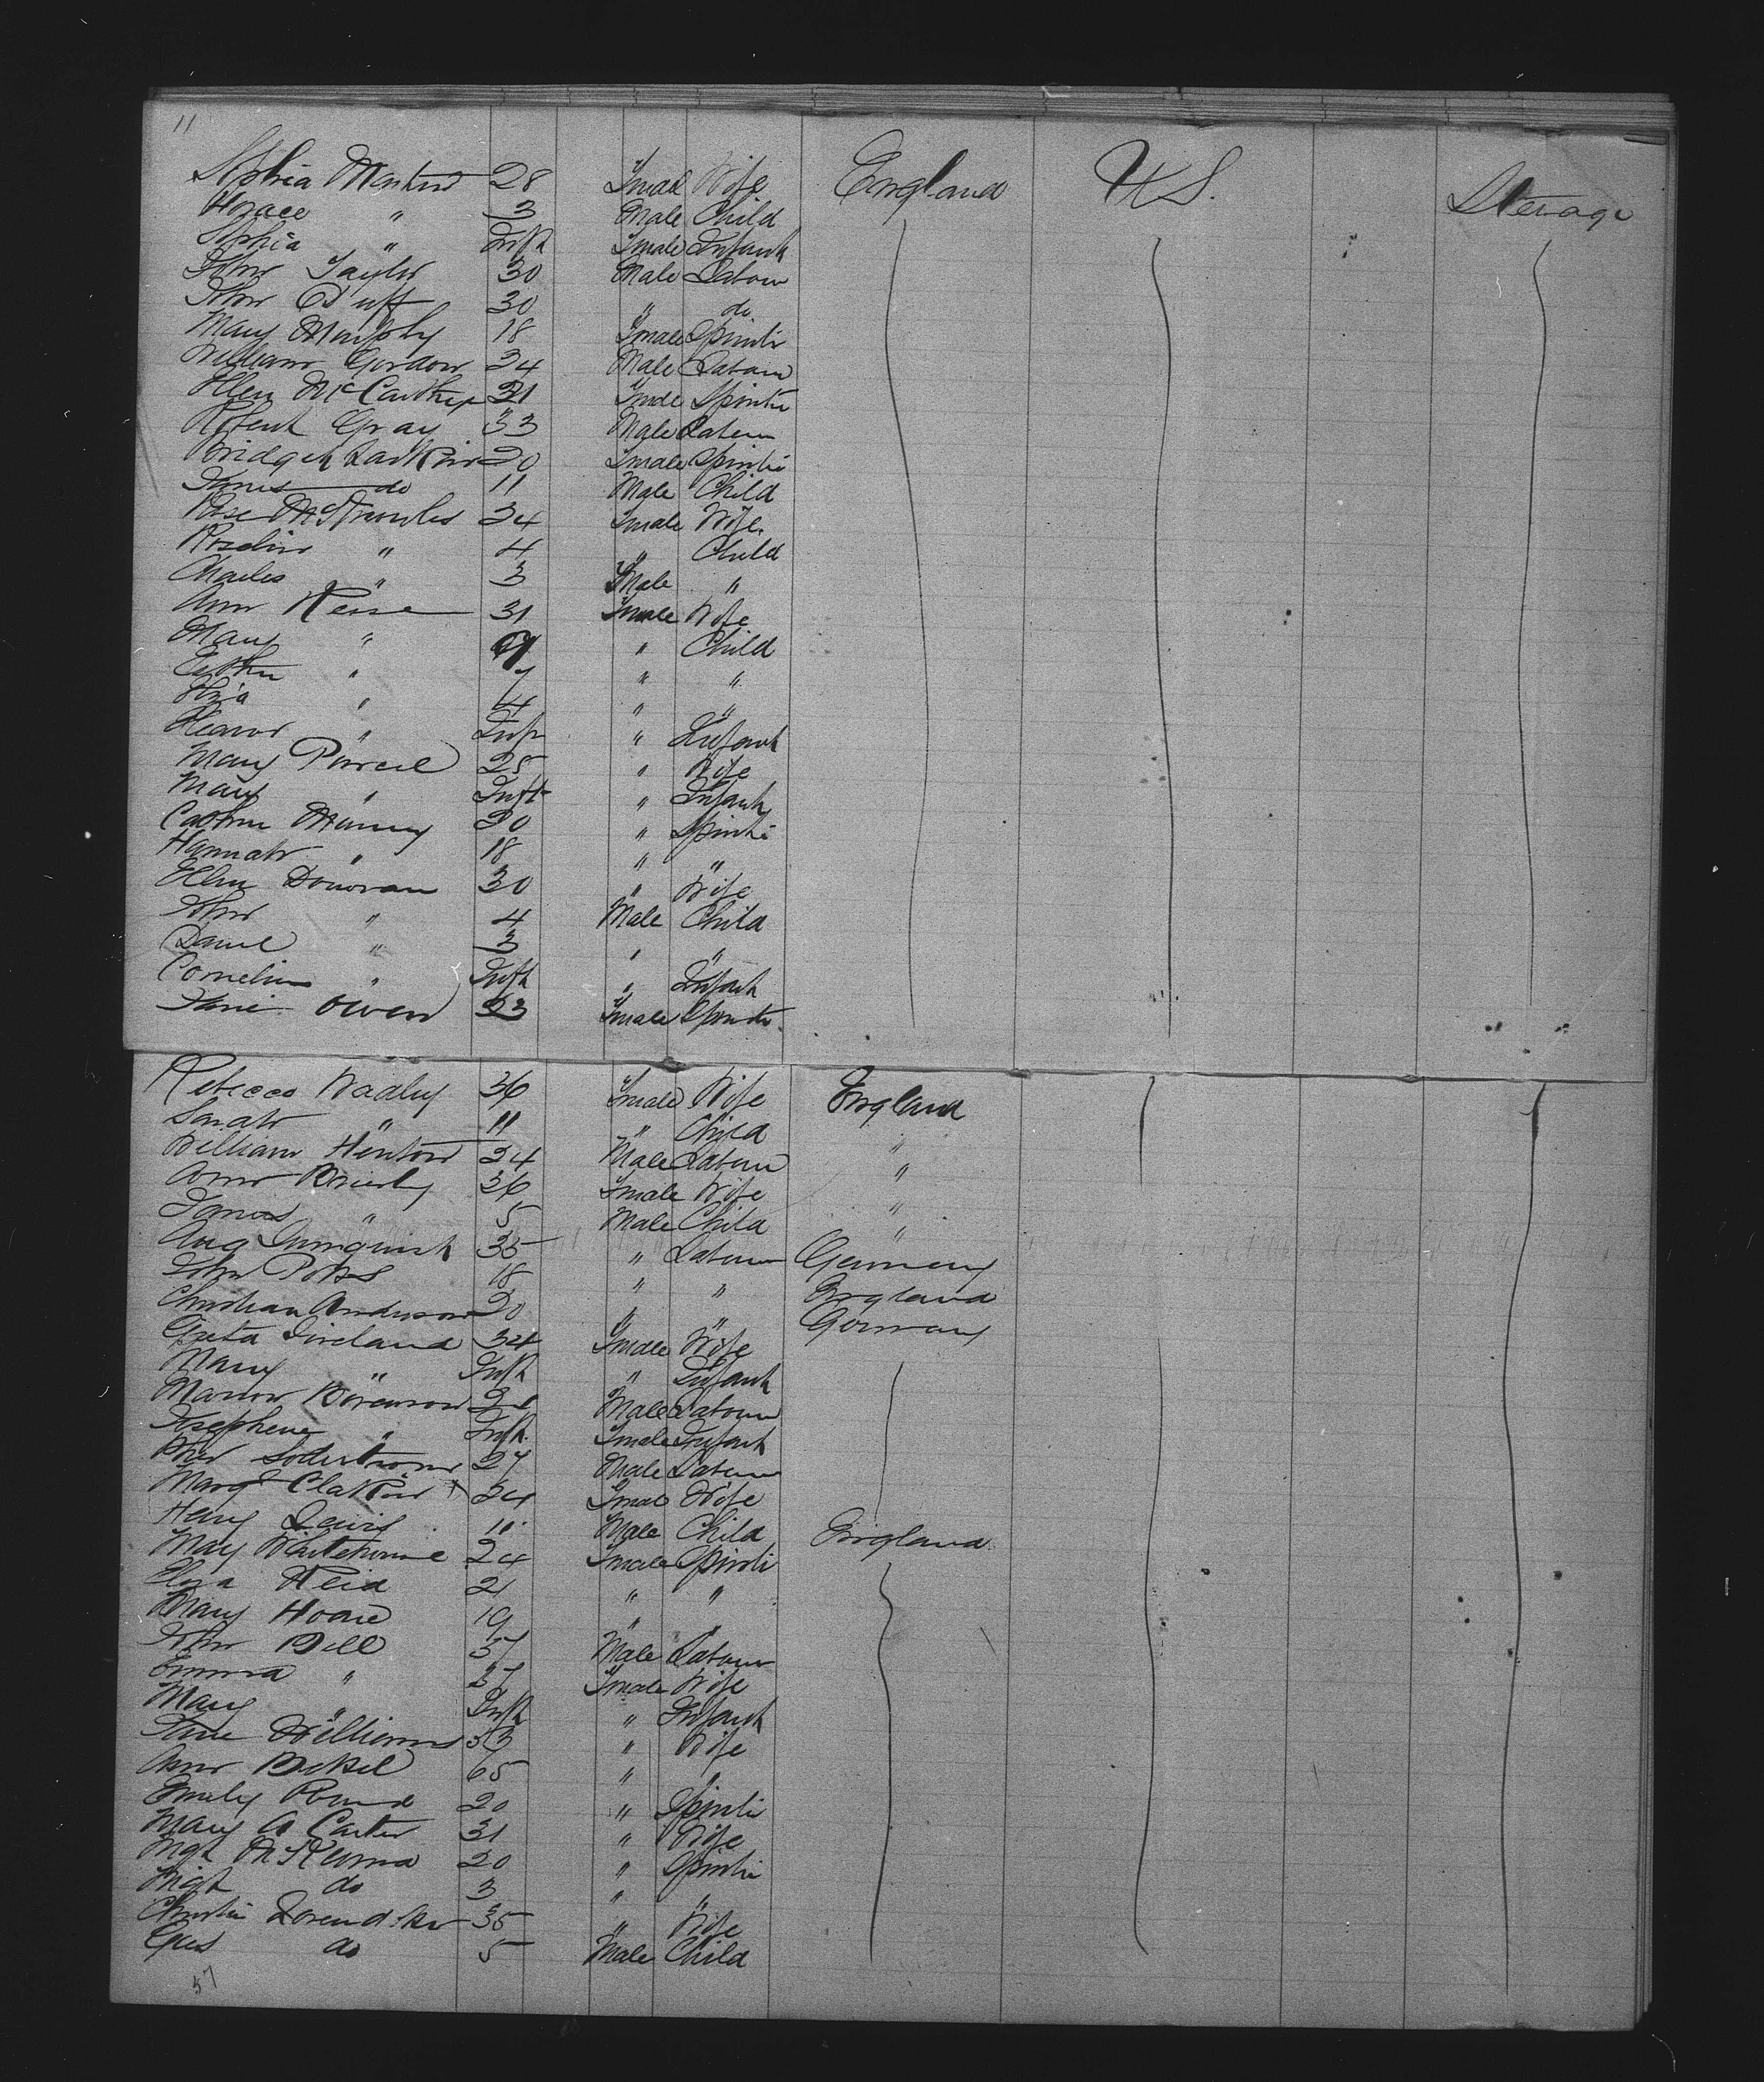 11
Sophia 28 Female Wife England U.S. Sterage
Horace " 3 Male Child
Sophia " Inft Female Infant
John Taylor 30 Male Labour
John Duff 30 " do
Mary Murphy 18 Female Spinster
William Gordon 34 Male Labour
Ellen McCarthy 21 Female Spinster
Robert Gray 33 Male Labour
Bridget Larkin 20 Female Spinster
James do 11 Male Child
Rose 34 Female Wife
" 4 " Child
Charles " 3 Male "
Ann 31 Female Wife
Mary " 9 " Child
Esther " 7 " "
Eliza " 4 " "
Eleanor " Inft " Infant
Mary Purcell 25 " Wife
Mary " Inft " Infant
20 " Spinster
Hannah " 18 " "
Ellen Donovan 30 " Wife
John " 4 Male Child
Daniel " 3 " "
Cornelius " Inft " Infant
Jane Owen 23 Female Spinster
Rebecca Wadley 36 Female Wife England
Sarah " 11 " Child "
William Henton 24 Male Labour "
Ann Brierly 36 Female Wife "
James " 5 Male Child "
Aug 35 " Labour Germany
John Potts 18 " " England
Christian Anderson 20 " " Germany
Greta 34 Female Wife
Mary " Inft " Infant
Male Labour
Josephene " Inft Female Infant
27 Male Labour
Margt 24 Female Wife
Henry Lewis 11 Male Child England
May Whitehouse 24 Female Spinster
Eliza Reid 21 " "
Mary Hoare 19 " "
John Bell 37 Male Labour
Emma " 37 Female Wife
Mary " Inft " Infant
Jane Williams 53 " Wife
Ann 65 " "
Emily Pound 20 " Spinster
Mary A Carter 31 " Wife
Mgt McKenna 20 " Spinster
do 3 " "
35 " Wife
Gus do 5 Male Child
57